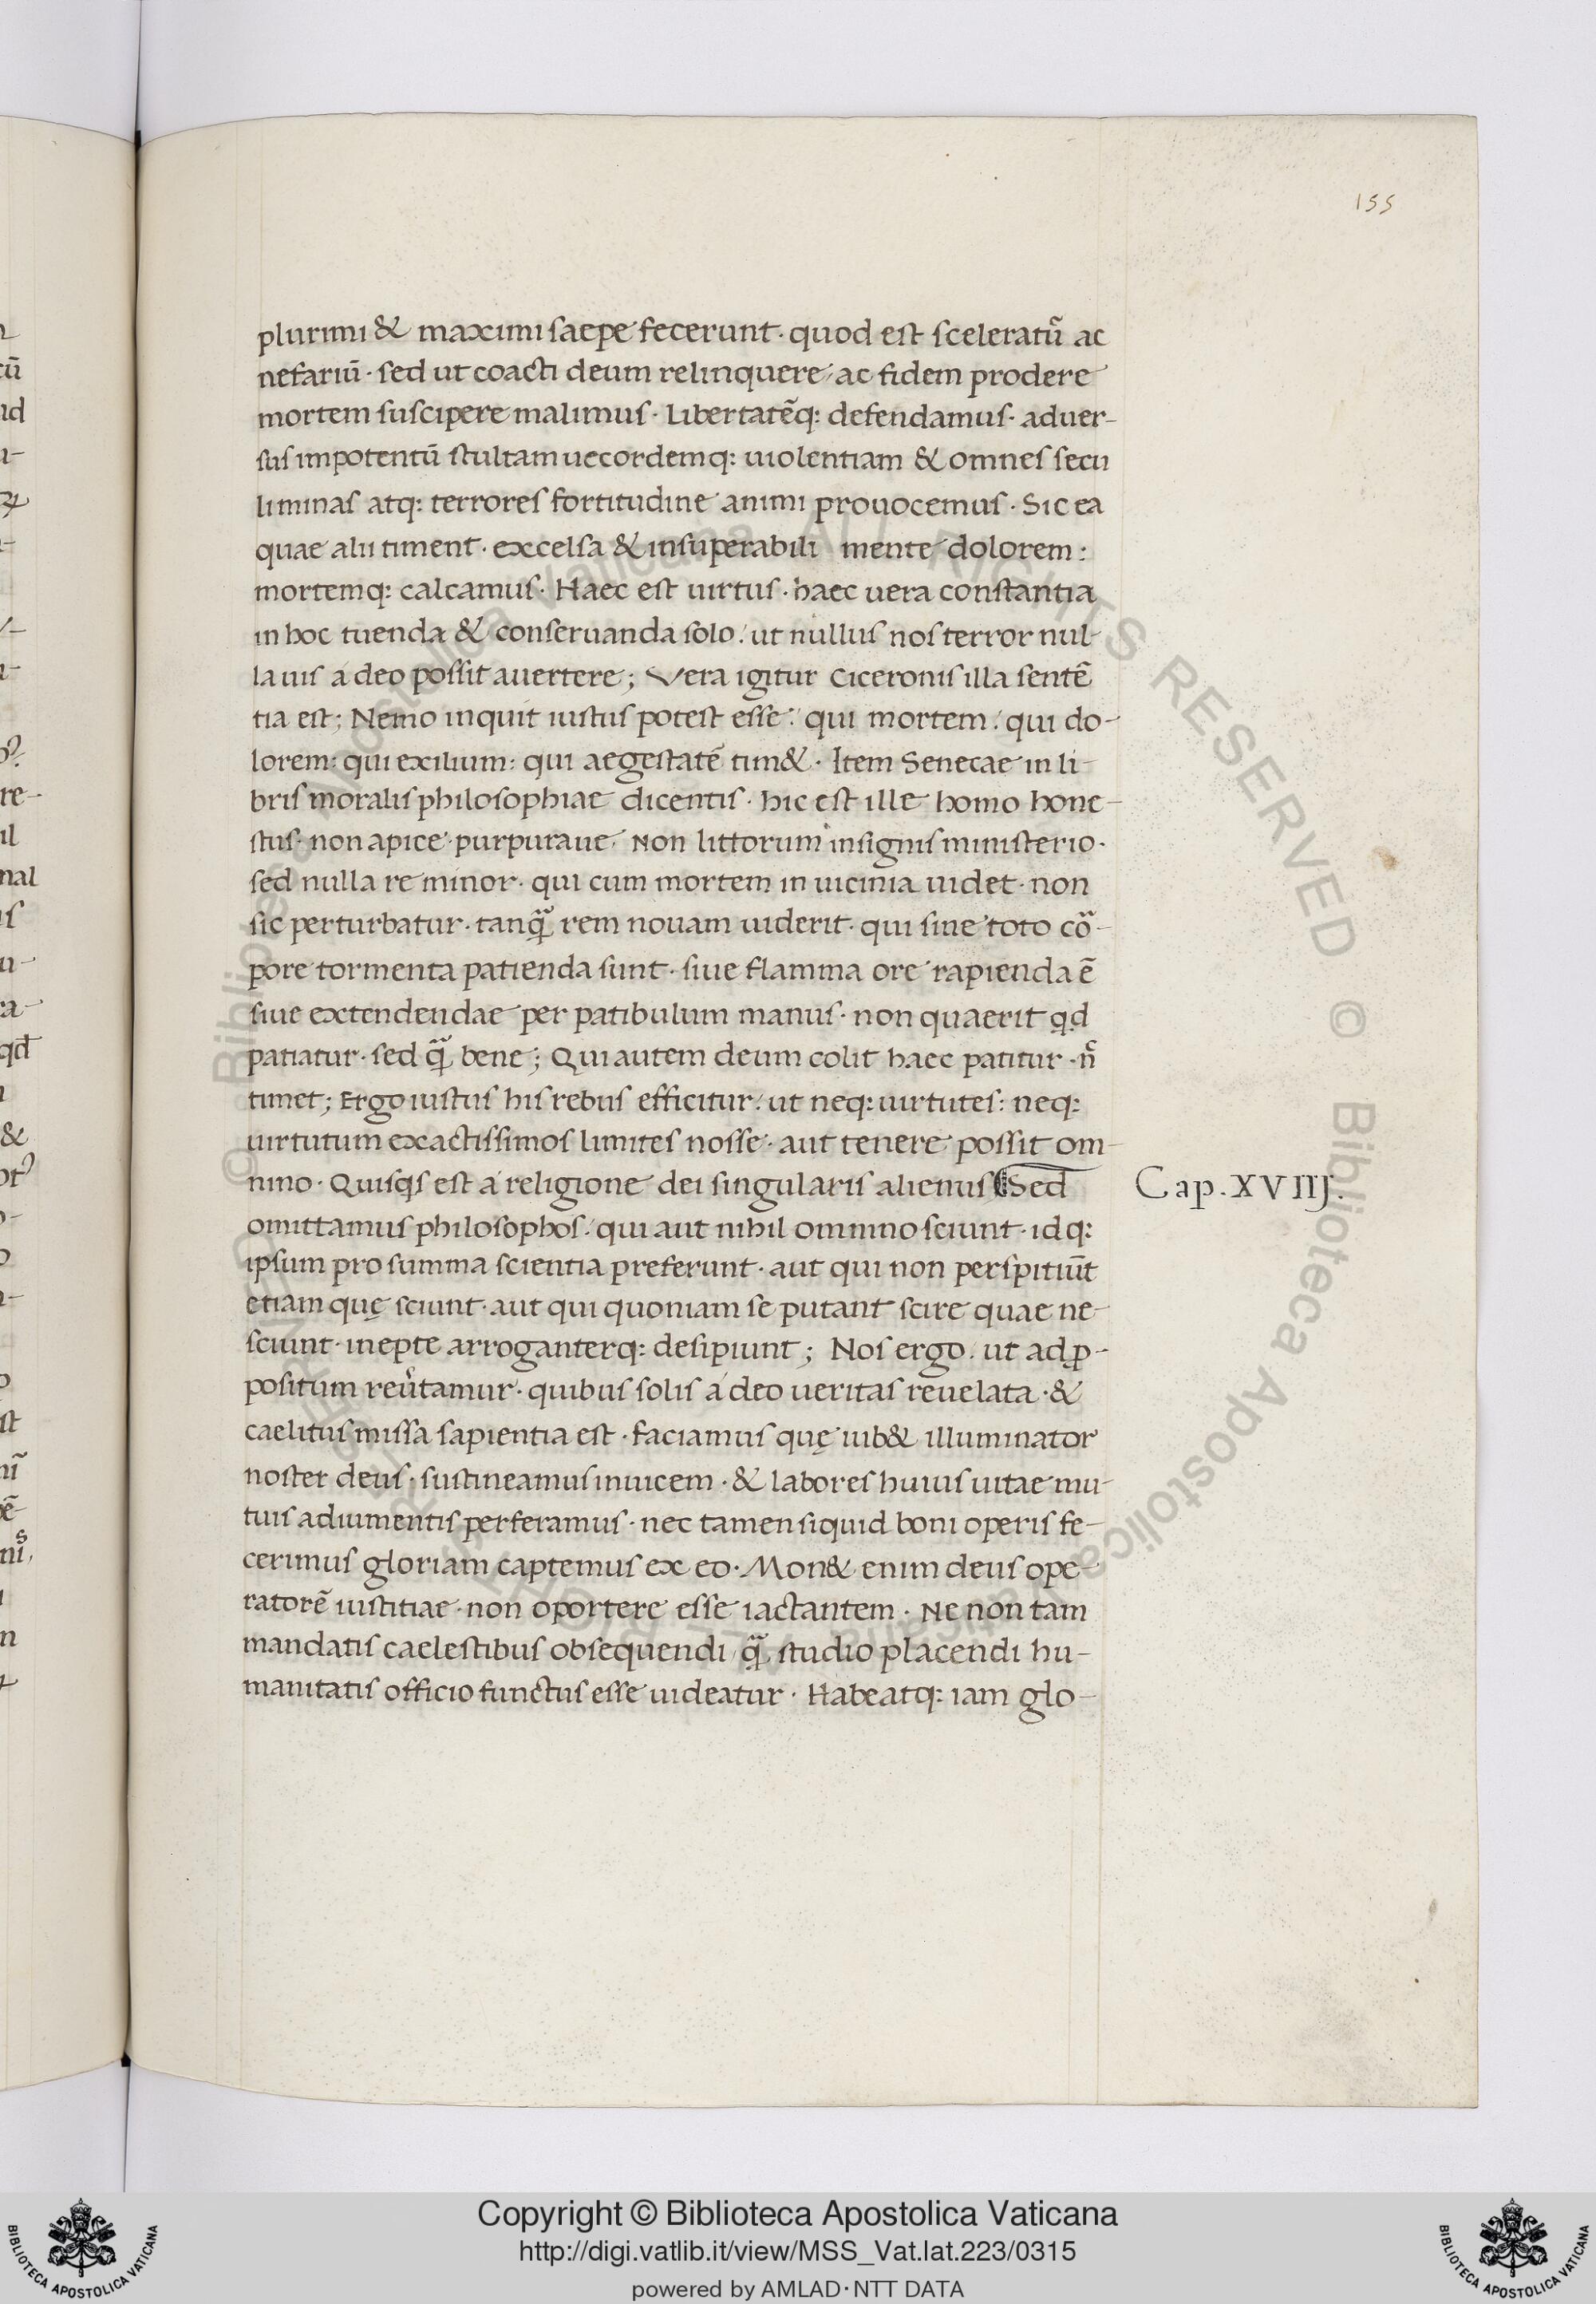 155
plurimi & maximi saepe fecerunt · quod est sceleratũ ac
nefariũ · sed ut coacti deum relinquere, ac fidem prodere
mortem suscipere malimus · Libertatẽq: defendamus · aduer-
sus impotentũ stultam uecordemq: uiolentiam & omnes secu
li minas atq: terrores fortitudine animi prouocemus · Sic ea
quae alii timent · excelsa & insuperabili mente dolorem:
mortemq: calcamus · Haec est uirtus · haec uera constantia
in hoc tuenda & conseruanda solo: ut nullus nos terror nul-
la uis á deo possit auertere; Vera igitur Ciceronis illa sentẽ
tia est; Nemo inquit iustus potest esse: qui mortem: qui do-
lorem: qui exilium: qui aegestatẽ tim& · Item Senecae in li-
bris moralis philosophiae dicentis · hic est ille homo hone-
stus · non apice · purpuraue, Non littorum insignis ministerio ·
sed nulla re minor · qui cum mortem in uicinia uidet · non
sic perturbatur · tanq̃ rem nouam uiderit · qui siue toto cõ-
pore tormenta patienda sunt · siue flamma ore rapienda ẽ
siue extendendae per patibulum manus · non quaerit qd
patiatur · sed q̃ bene; Qui autem deum colit haec patitur · ñ
timet; Ergo iustus his rebus efficitur: ut neq: uirtutes: neq:
uirtutum exactissimos limites nosse · aut tenere possit om-
nino · Quisqs est á religione dei singularis alienus Sed
Cap. XVIIJ.
omittamus philosophos: qui aut nihil omnino sciunt · idq:
ipsum pro summa scientia preferunt · aut qui non perspitiũt
etiam quę sciunt · aut qui quoniam se putant scire quae ne-
sciunt · inepte arroganterq: desipiunt; Nos ergo. ut ad ꝓ-
positum reũtamur · quibus solis á deo ueritas reuelata · &
caelitus missa sapientia est · faciamus quę iub& illuminator
noster deus · sustineamus inuicem · & labores huius uitae mu-
tuis adiumentis perferamus · nec tamen siquid boni operis fe-
cerimus gloriam captemus ex eo · Mon& enim deus ope-
ratorẽ iustitiae · non oportere esse iactantem · Ne non tam
mandatis caelestibus obsequendi, q̃ studio placendi hu-
manitatis officio functus esse uideatur · Habeatq: iam glo-
Copyright © Biblioteca Apostolica Vaticana
http://digi.vatlib.it/view/MSS_Vat.lat.223/0315
powered by AMLAD·NTT DATA
BIBLIOTECA APOSTOLICA VATICANA
BIBLIOTECA APOSTOLICA VATICANA